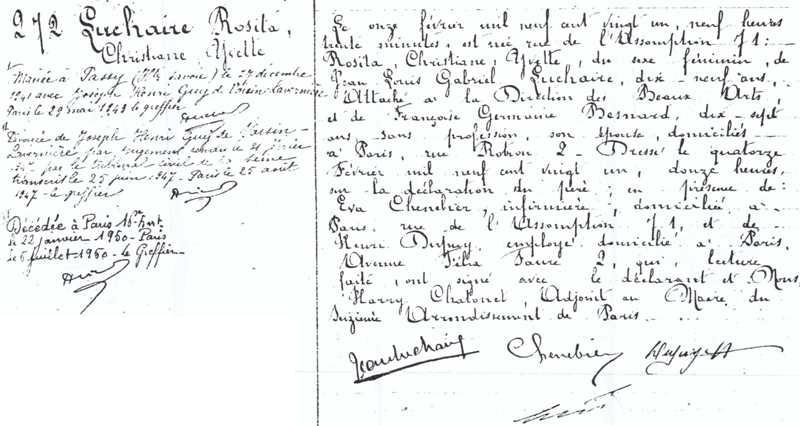 272 Luchaire Rosita,
Christiane Yvette
Mariée à Passy (Hte Savoie) le 27 décembre
1941 avec Joseph Henri Guy de Voisin-Lavernière
Paris le 29 mai 1943 le greffier
Divorcée de Joseph Henri Guy de Voisin-
Lavernière par jugement rendu le
par le Tribunal civil de la Seine
transcrit le 25 juin 1947 - Paris le 25 août
1947 - le greffier
Décédée à Paris 16e Arrt
le 22 janvier 1950 - Paris
le 6 juillet 1950 - le Greffier
Le onze février mil neuf cent vingt un, neuf heures
trente minutes, est née rue de l'Assomption 71:
Rosita, Christiane, Yvette, du sexe féminin, de
Jean Louis Gabriel Luchaire, dix-neuf ans,
Attaché à la Direction des Beaux Arts,
et de Françoise Germaine Besnard, dix-sept
ans sans profession, son épouse, domiciliés
à Paris, rue Robion 2 - Dressé le quatorze
Février mil neuf cent vingt un, douze heures,
sur la déclaration du père; en présence de:
Eva Chenebier, infirmière, domiciliée à
Paris rue de l'Assomption 71, et de
Henri Dupuy employé domicilié à Paris,
Avenue Félix Faure 2, qui, lecture
faite, ont signé avec le déclarant et Nous,
Harry Chatonet, Adjoint au Maire du
Seizième Arrondissement de Paris.
Jean Luchaire Chenebier